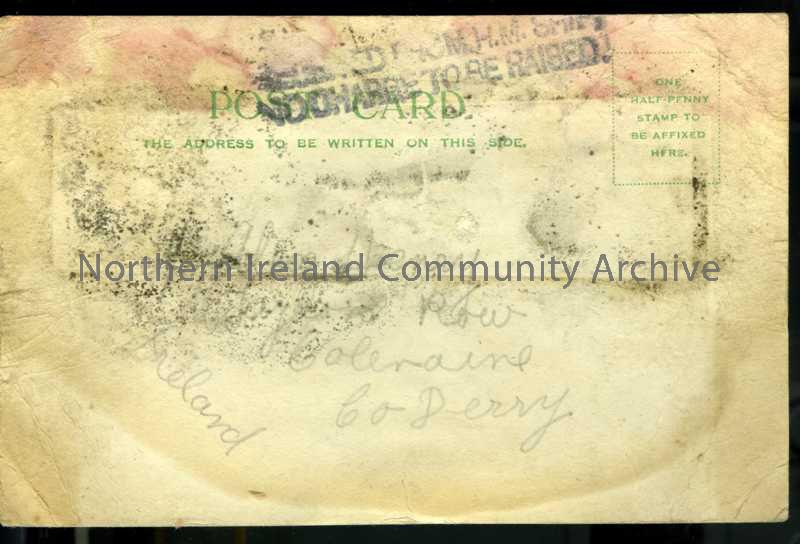 FROM H.M. SHIP
NO CHARGE TO BE RAISED
POST CARD
THE ADDRESS TO BE WRITTEN ON THIS SIDE.
ONE
HALF-PENNY
STAMP TO
BE AFFIXED
HERE.
Northern Ireland Community Archive
Row
Coleraine
Co Derry
Ireland